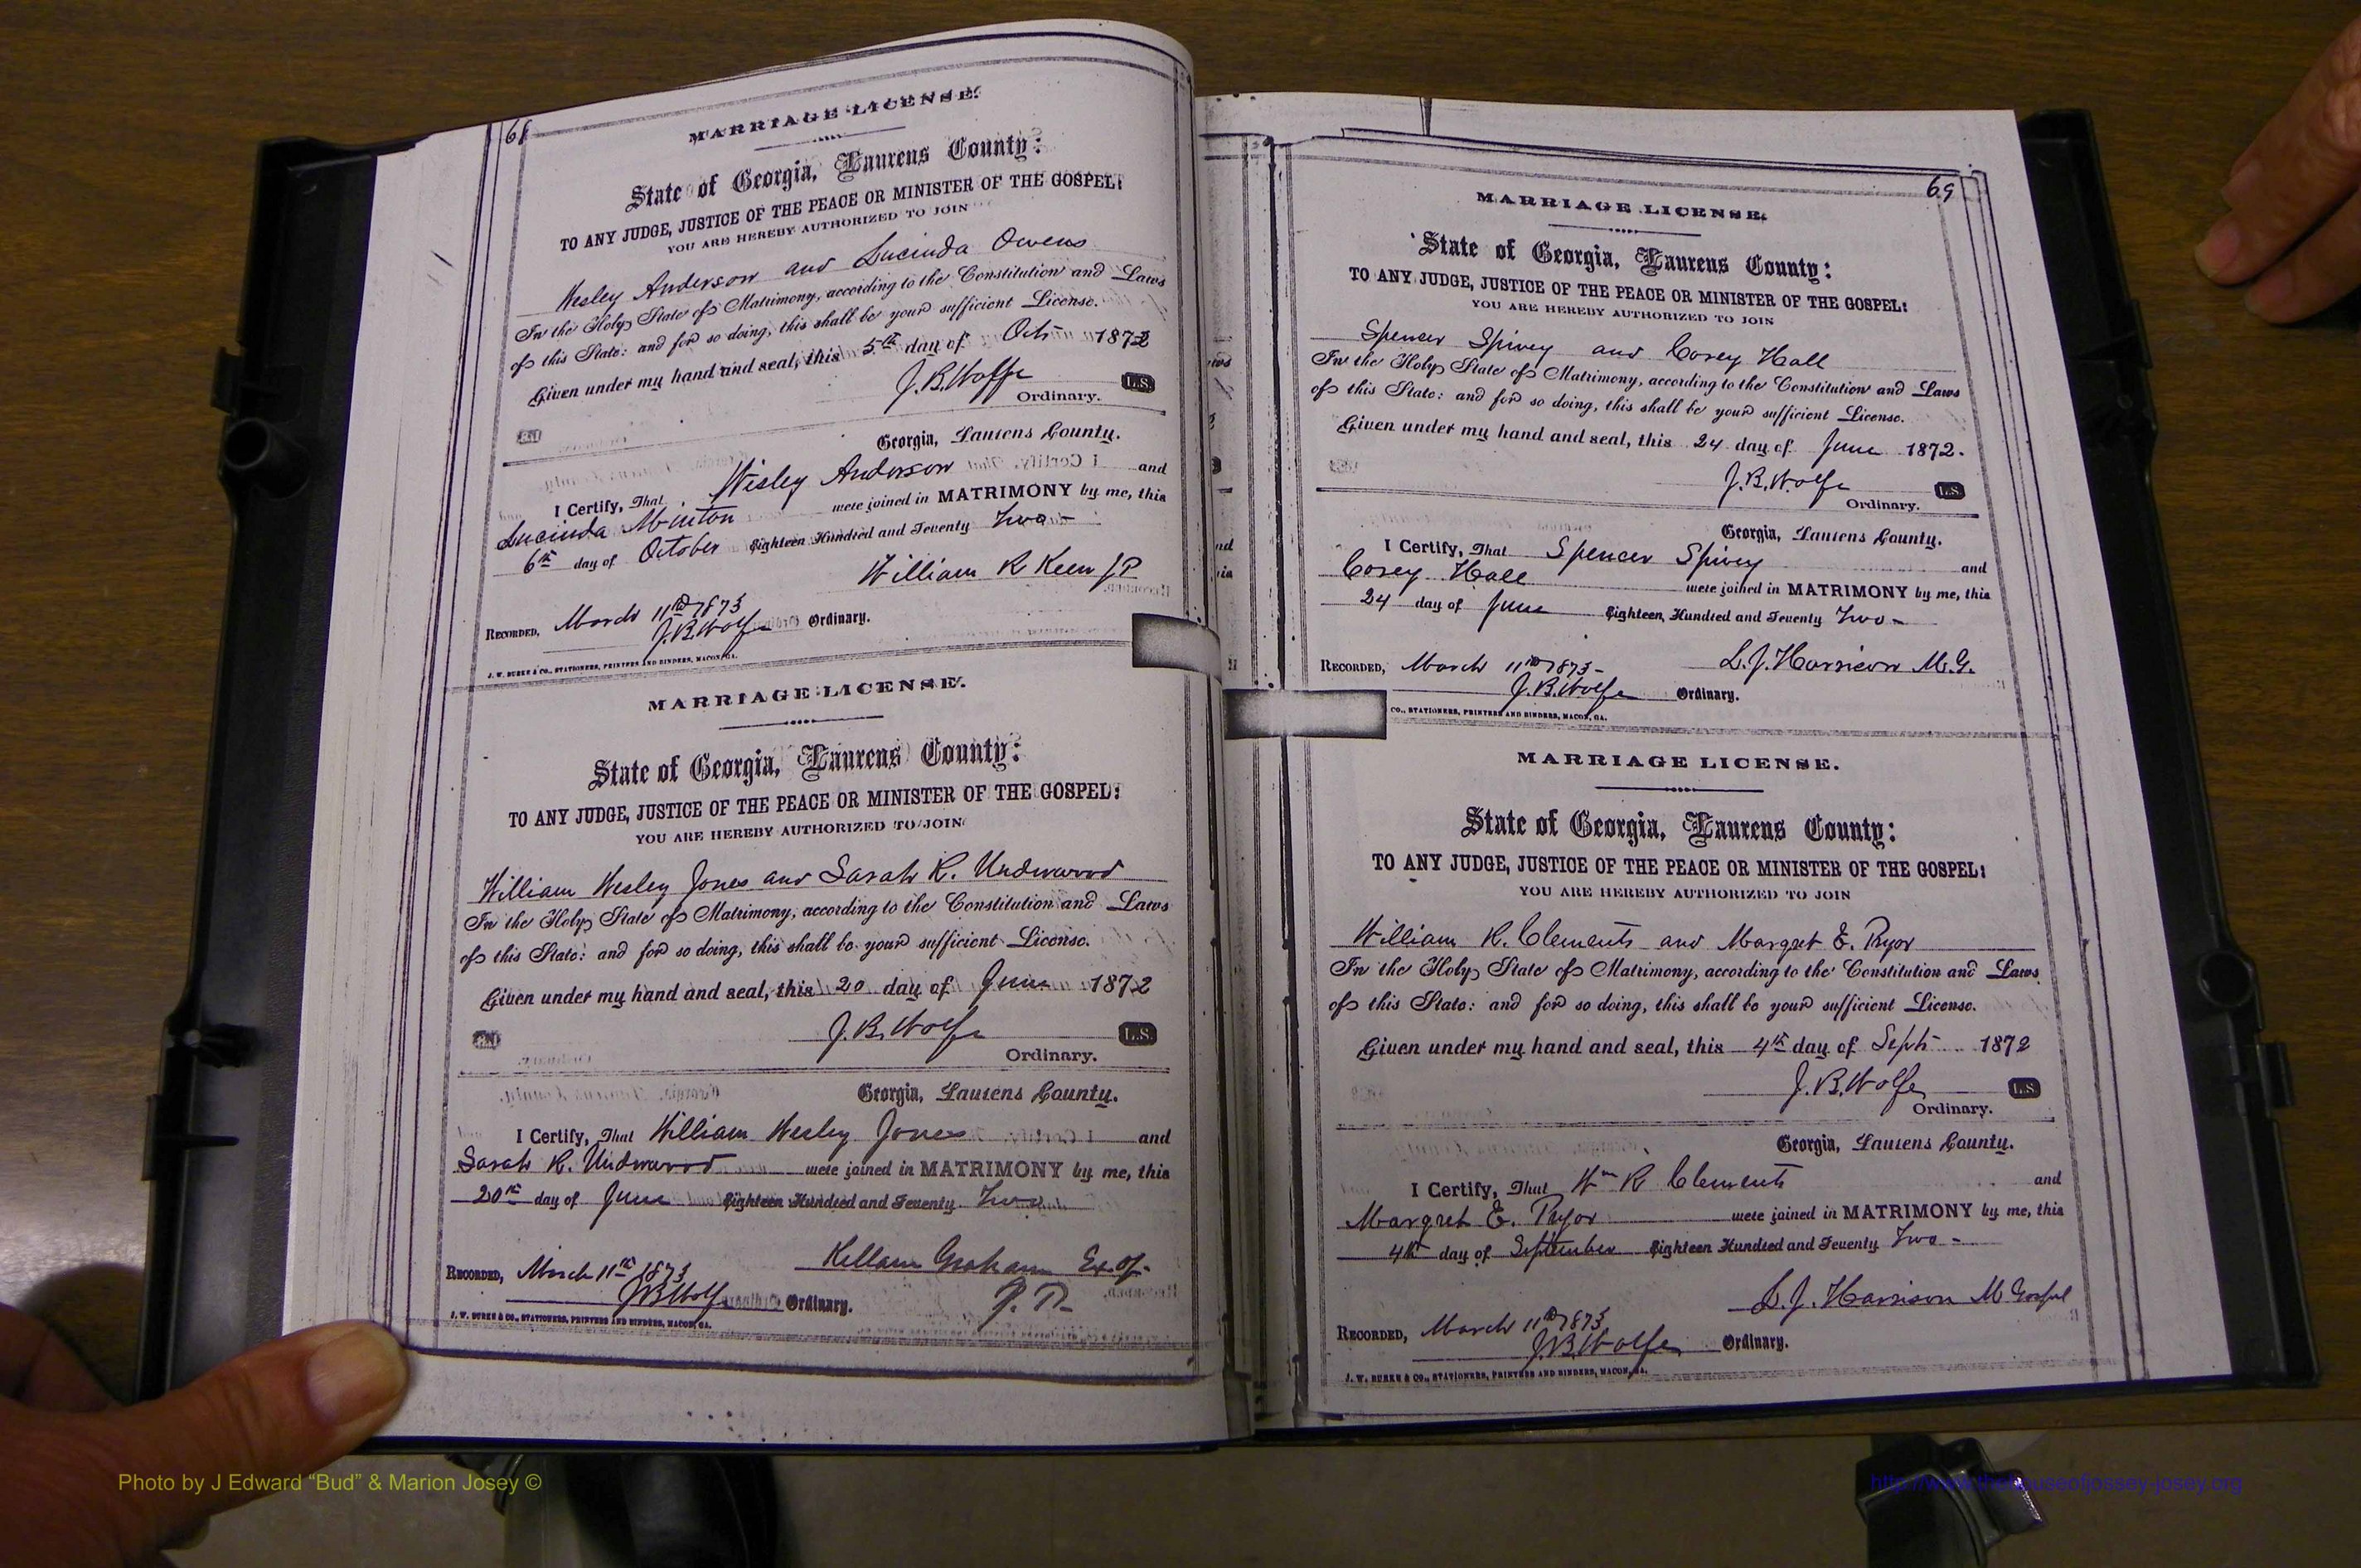 68
MARRIAGE LICENSE.
State of Georgia, Laurens County:
TO ANY JUDGE, JUSTICE OF THE PEACE OR MINISTER OF THE GOSPEL:
YOU ARE HEREBY AUTHORIZED TO JOIN
Wesley Anderson and Lucinda Owens
In the Holy State of Matrimony, according to the Constitution and Laws
of this State: and for so doing, this shall be your sufficient License.
Given under my hand and seal, this 5th day of Oct 1872
J.B. Wolfe L.S.
Ordinary.
Georgia, Laurens County.
I Certify, That Wesley Anderson and
Lucinda Minton were joined in MATRIMONY by me, this
6th day of October Eighteen Hundred and Seventy Two -
William R Keen J P
RECORDED, March 11th 1873
J.B. Wolfe Ordinary.
J. W. BURKE & CO., STATIONERS, PRINTERS AND BINDERS, MACON, GA.
MARRIAGE LICENSE.
State of Georgia, Laurens County:
TO ANY JUDGE, JUSTICE OF THE PEACE OR MINISTER OF THE GOSPEL:
YOU ARE HEREBY AUTHORIZED TO JOIN
William Wesley Jones and Sarah R. Underwood
In the Holy State of Matrimony, according to the Constitution and Laws
of this State: and for so doing, this shall be your sufficient License.
Given under my hand and seal, this 20 day of June 1872
J.B. Wolfe L.S.
Ordinary.
Georgia, Laurens County.
I Certify, That William Wesley Jones and
Sarah R. Underwood were joined in MATRIMONY by me, this
20th day of June Eighteen Hundred and Seventy Two
Kellam Graham Ex. of.
J. P.
RECORDED, March 11th 1873
J.B. Wolfe Ordinary.
J. W. BURKE & CO., STATIONERS, PRINTERS AND BINDERS, MACON, GA.
69
MARRIAGE LICENSE.
State of Georgia, Laurens County:
TO ANY JUDGE, JUSTICE OF THE PEACE OR MINISTER OF THE GOSPEL:
YOU ARE HEREBY AUTHORIZED TO JOIN
Spencer Spivey and Cosey Hall
In the Holy State of Matrimony, according to the Constitution and Laws
of this State: and for so doing, this shall be your sufficient License.
Given under my hand and seal, this 24 day of June 1872.
J.B. Wolfe L.S.
Ordinary.
Georgia, Laurens County.
I Certify, That Spencer Spivey and
Cosey Hall were joined in MATRIMONY by me, this
24 day of June Eighteen Hundred and Seventy Two -
L.J. Harrison M.G.
RECORDED, March 11th 1873-
J.B. Wolfe Ordinary.
CO., STATIONERS, PRINTERS AND BINDERS, MACON, GA.
MARRIAGE LICENSE.
State of Georgia, Laurens County:
TO ANY JUDGE, JUSTICE OF THE PEACE OR MINISTER OF THE GOSPEL:
YOU ARE HEREBY AUTHORIZED TO JOIN
William R. Clements and Margret E. Pryor
In the Holy State of Matrimony, according to the Constitution and Laws
of this State: and for so doing, this shall be your sufficient License.
Given under my hand and seal, this 4th day of Sept 1872
J.B. Wolfe L.S.
Ordinary.
Georgia, Laurens County.
I Certify, That Wm R Clements and
Margret E. Pryor were joined in MATRIMONY by me, this
4th day of September Eighteen Hundred and Seventy Two -
L.J. Harrison M Gospel
RECORDED, March 11th 1873
J.B. Wolfe Ordinary.
J. W. BURKE & CO., STATIONERS, PRINTERS AND BINDERS, MACON, GA.
Photo by J Edward “Bud” & Marion Josey ©
http://www.thehouseofjossey-josey.org